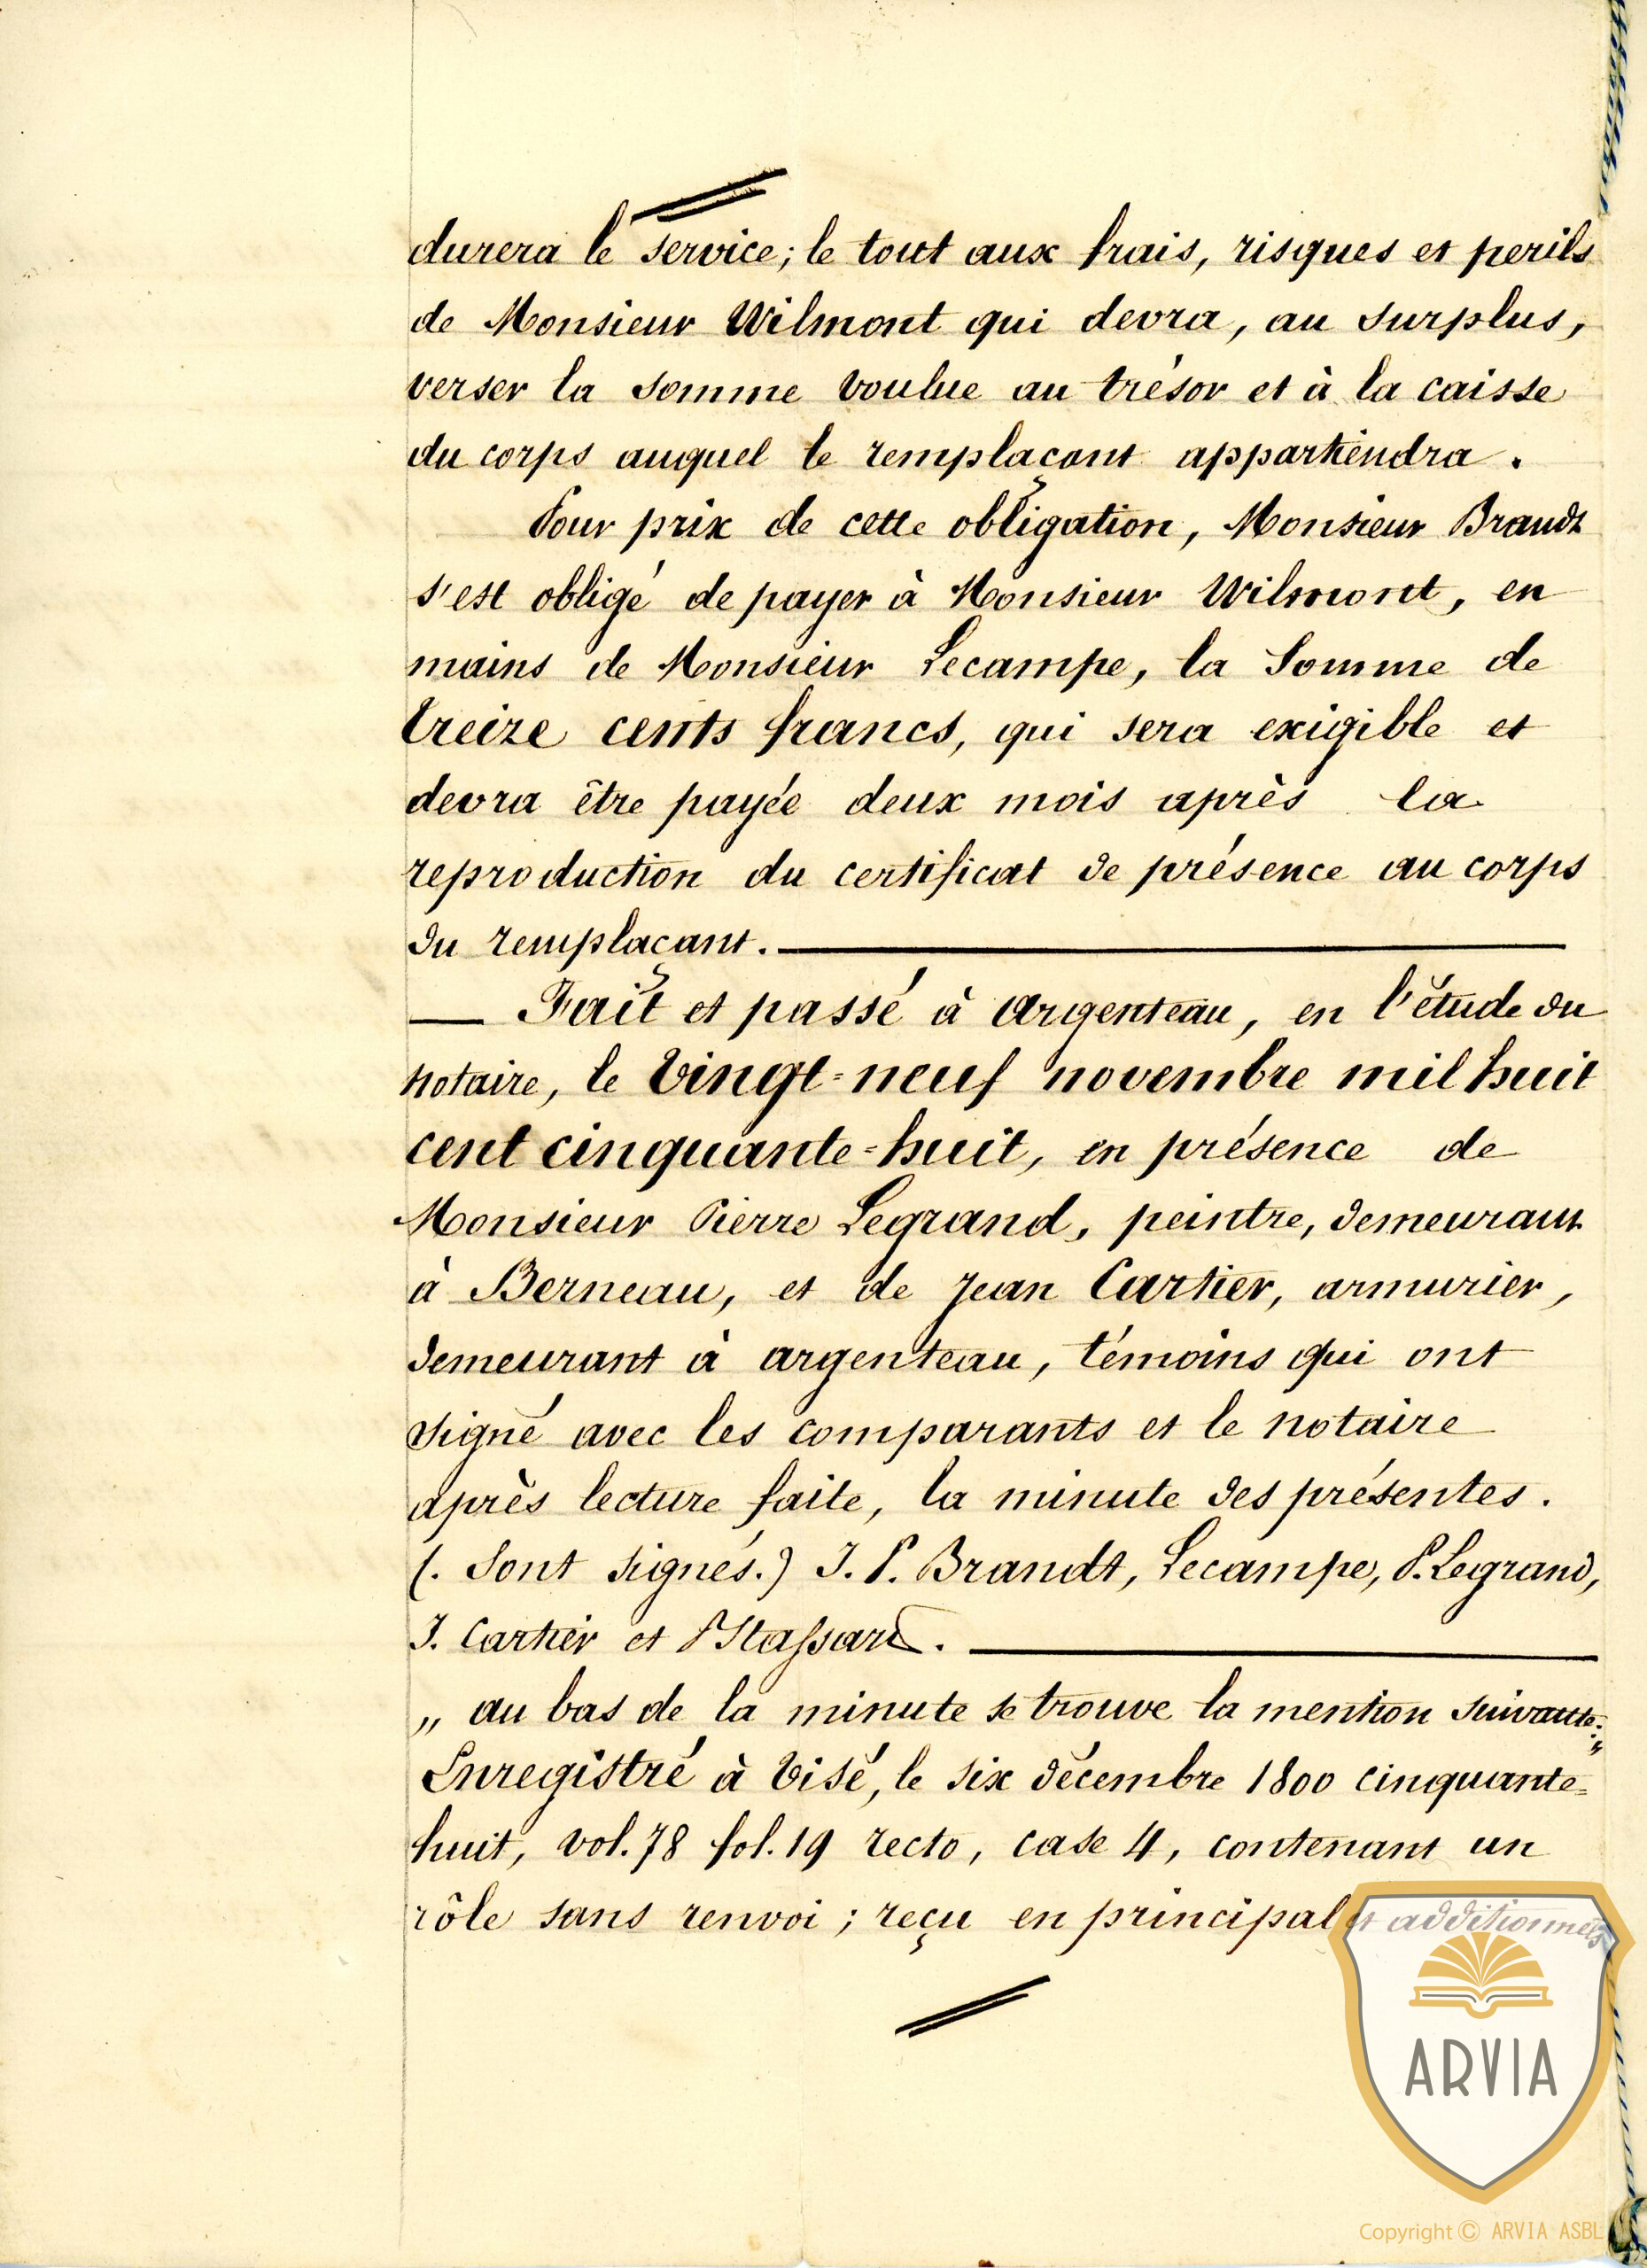 durera le service; le tout aux frais, risques et perils
de Monsieur Wilmont qui devra, au surplus,
verser la somme voulue au trésor et à la caisse
du corps auquel le remplaçant appartiendra.
Pour prix de cette obligation, Monsieur Brandt
s'est obligé de payer à Monsieur Wilmont, en
mains de Monsieur Lecampe, la Somme de
treize cents francs, qui sera exigible et
devra être payée deux mois après la
reproduction du certificat de présence au corps
du remplaçant.
Fait et passé à Argenteau, en l'étude du
notaire, le Vingt-neuf novembre mil huit
cent cinquante-huit, en présence de
Monsieur Pierre Legrand, peintre, demeurant
à Berneau, et de Jean Cartier, armurier,
demeurant à argenteau, témoins qui ont
signé avec les comparants et le notaire
après lecture faite, la minute des présentes.
(. Sont signés.) J. P. Brandt, Lecampe, P. Legrand,
J. Cartier et Stassart.
„ au bas de la minute se trouve la mention suivante: „
Enregistré à Visé, le six décembre 1800 cinquante-
huit, vol. 78 fol. 19 recto, case 4, contenant un
rôle sans renvoi; reçu en principal et additionnels
ARVIA
Copyright © ARVIA ASBL